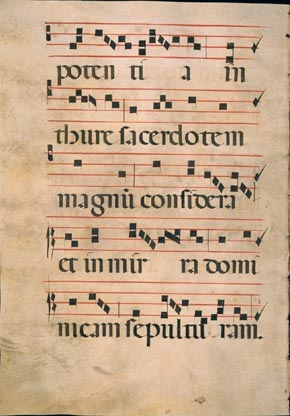 poten ti a in
thure sacerdotem
magnū considera
et in mir ra domi
nicam sepultu ram.